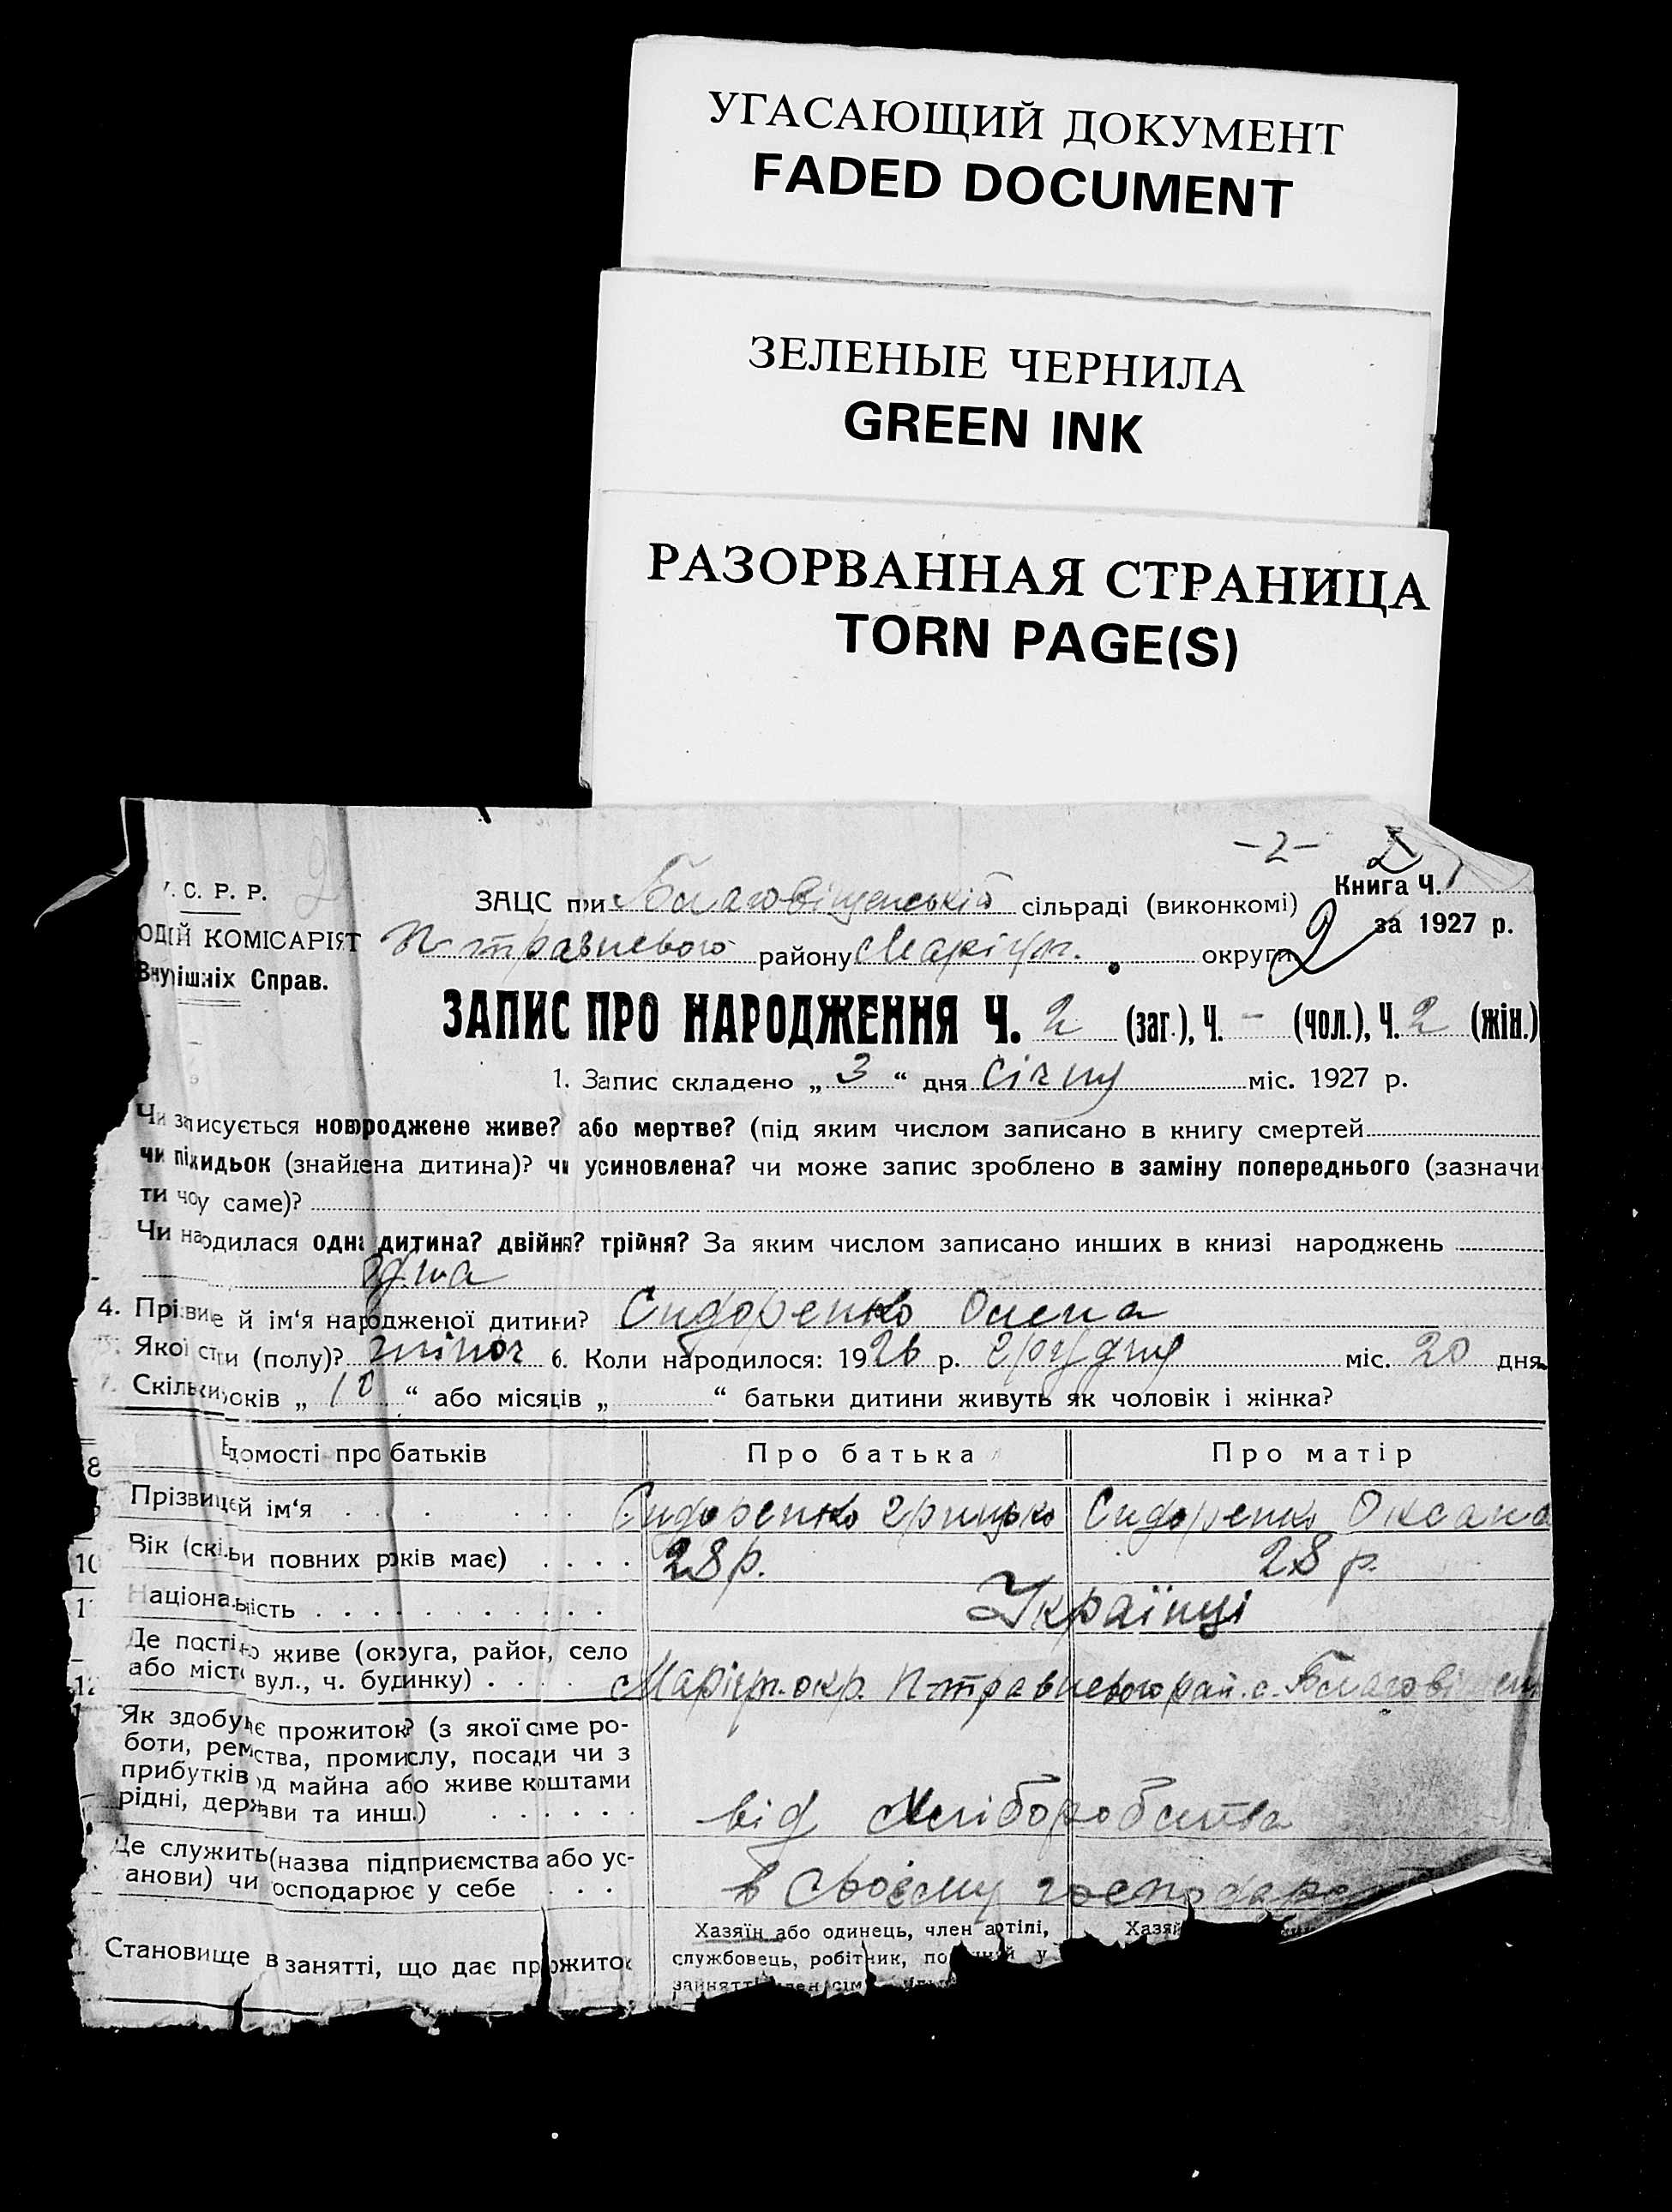 УГАСАЮЩИЙ ДОКУМЕНТ
FADED DOCUMENT
ЗЕЛЕНЫЕ ЧЕРНИЛА
GREEN INK
РАЗОРВАННАЯ СТРАНИЦА
TORN PAGE(S)
-2-
С. Р. Р.
ЗАЦС при Благовіщенській сільраді (виконкомі)
Книга Ч.
2 за 1927 р.
КОМІСАРІЯТ
П-травневого району Маріуп. округи
Внутрішніх Справ.
ЗАПИС ПРО НАРОДЖЕННЯ Ч. 2 (заг.), Ч. - (чол.), Ч. 2 (жін.)
1. Запис складено „ 3 “ дня січня міс. 1927 р.
Чи записується новороджене живе? або мертве? (під яким числом записано в книгу смертей
чи підкидьок (знайдена дитина)? чи усиновлена? чи може запис зроблено в заміну попереднього (зазначи
ти чому саме)?
Чи народилася одна дитина? двійня? трійня? За яким числом записано инших в книзі народжень
одна
4. Прізвище й ім‘я народженої дитини? Сидоренко Олена
5. Якої стати (полу)? жіноч 6. Коли народилося: 1926 р. грудня міс. 20 дня
7. Скільки років „ 10 “ або місяців „ “ батьки дитини живуть як чоловік і жінка?
8 Відомості про батьків Про батька Про матір
Прізвище й ім‘я Сидоренко Грицько Сидоренко Оксана
10 Вік (скільки повних років має) 28 р. 28 р.
Національність Українці
Де постійно живе (округа, район, село
або місто вул., ч. будинку) Маріуп. окр. П-травневого рай. с. Благовіщен
Як здобуває прожиток? (з якої саме ро-
боти, ремества, промислу, посади чи з
прибутків од майна або живе коштами
рідні, держави та инш.) від хліборобства
Де служить (назва підприємства або ус-
танови) чи господарює у себе в своєму господарс
Становище в занятті, що дає прожиток
Хазяїн або одинець, член артілі,
службовець, робітник,
Хазяї